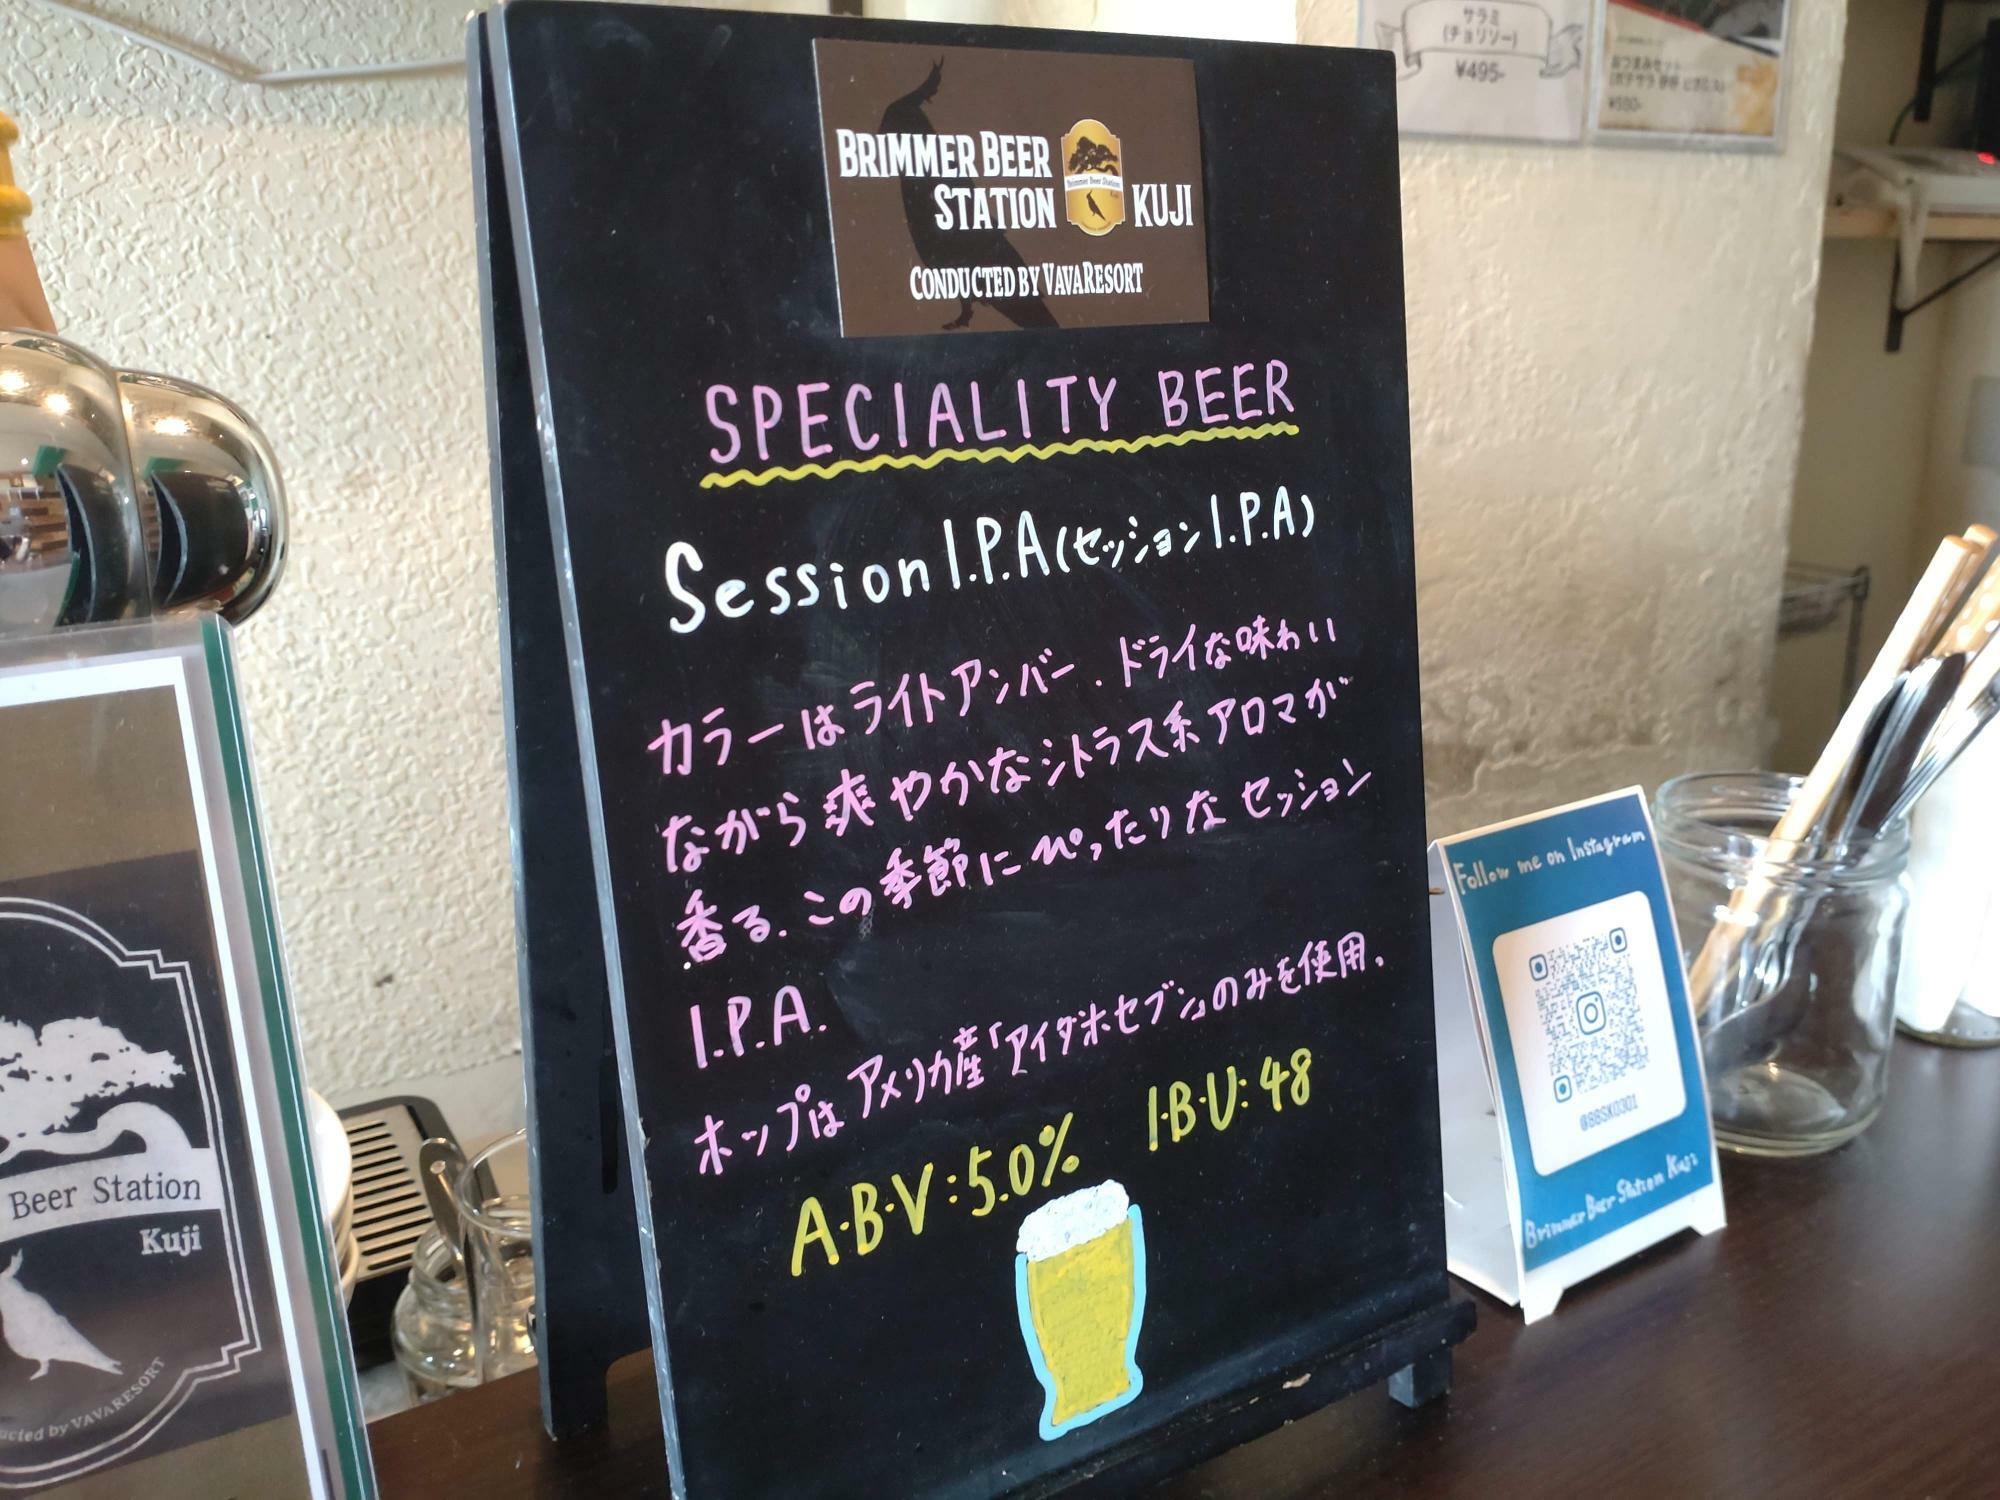 BRIMMER BEER
STATION
KUJI
Brimmer Beer Station
CONDUCTED BY VAVARESORT
SPECIALITY BEER
Session I.P.A(セッション I.P.A)
カラーはライトアンバー、ドライな味わい
ながら爽やかなシトラス系アロマが
香る。この季節にぴったりなセッション
I.P.A.
ホップはアメリカ産「アイダホセブン」のみを使用。
A・B・V:5.0% I・B・U:48
サラミ
(チョリソー)
¥495-
おつまみセット
Follow me on Instagram
@BBSK0301
Brimmer Beer Station Kuji
Beer Station
Kuji
ucted by VAVARESORT